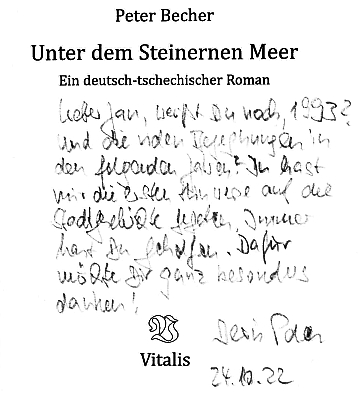 Peter Becher
Unter dem Steinernen Meer
Ein deutsch-tschechischer Roman
Lieber Jan, weißt Du noch, 1993?
Und die vielen Begegnungen in
den folgenden Jahren? Du hast
mir die ersten Hinweise auf die
Stadtgeschichte gegeben, Immer
hast Du geholfen. Dafür
möchte Dir ganz besonders
danken!
Dein Peter
Vitalis
24.10.22